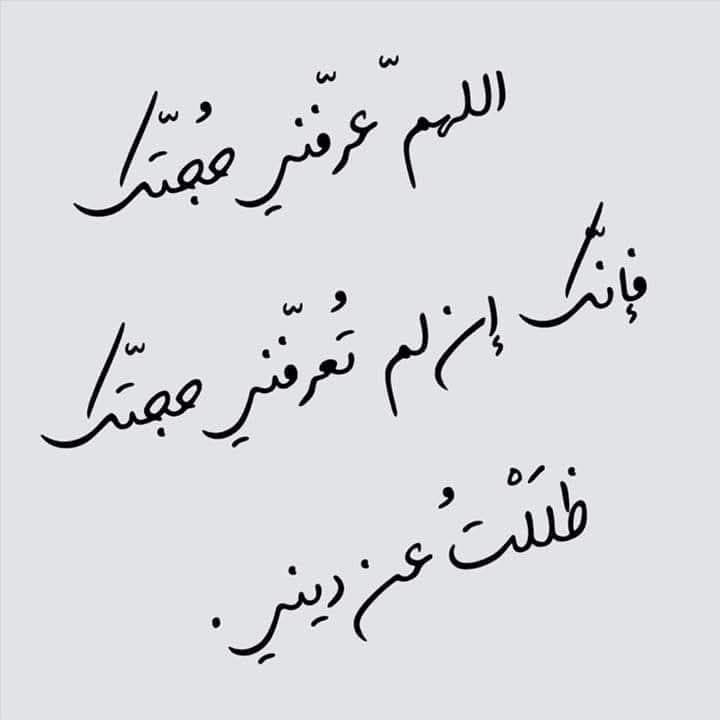 اللهمّ عرّفني حُجّتك
فإنّك إن لم تُعرّفني حجّتك
ظلَلْتُ عن ديني .